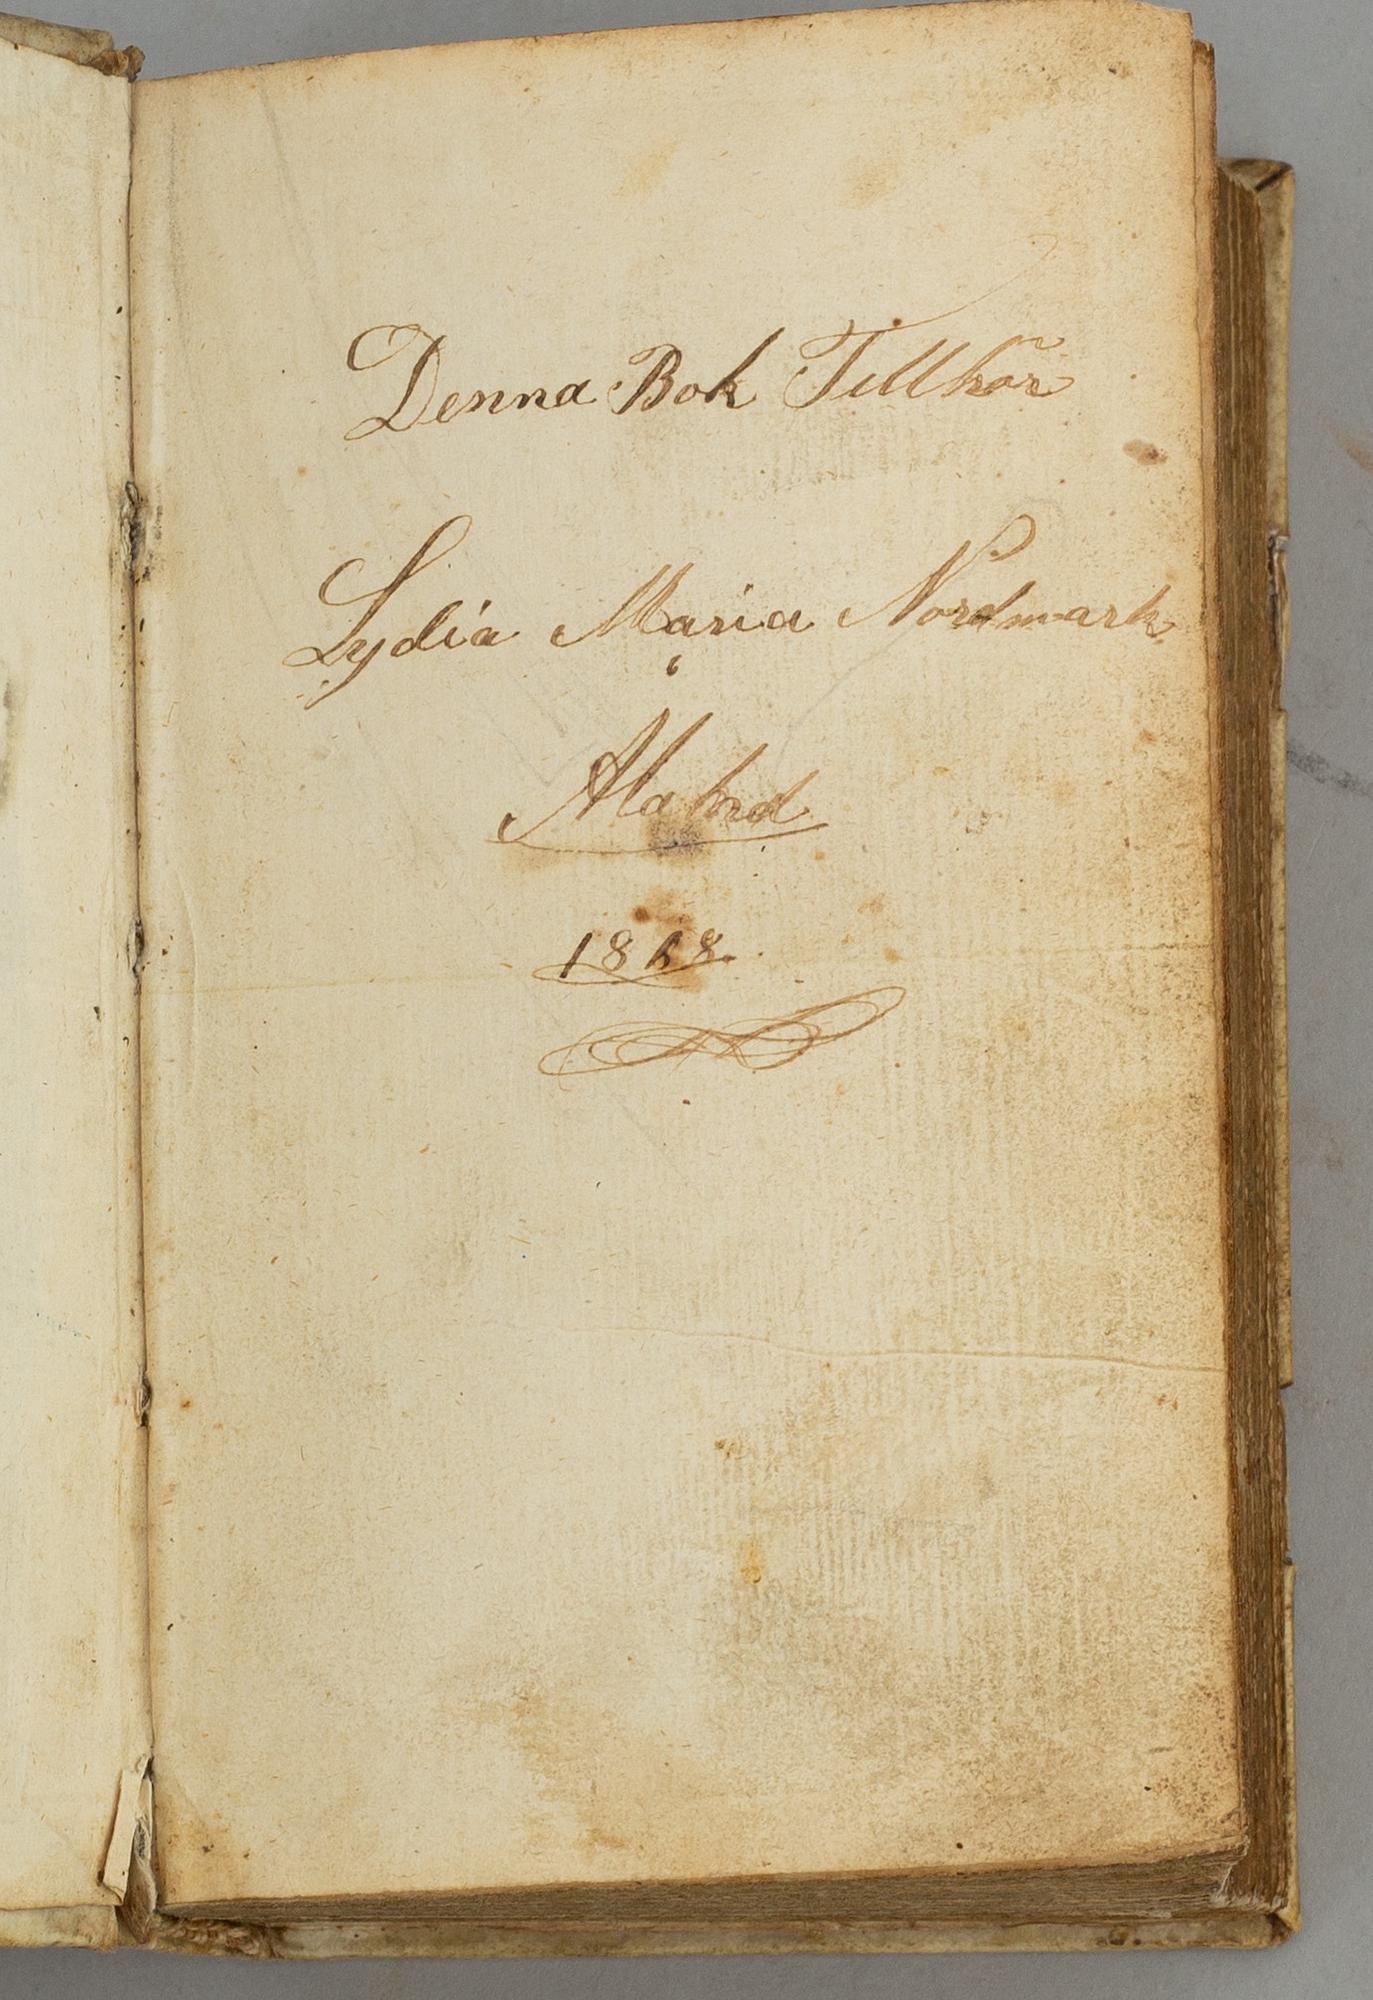 Denna Bok Tillhör
Lydia Maria Nordmark
1868